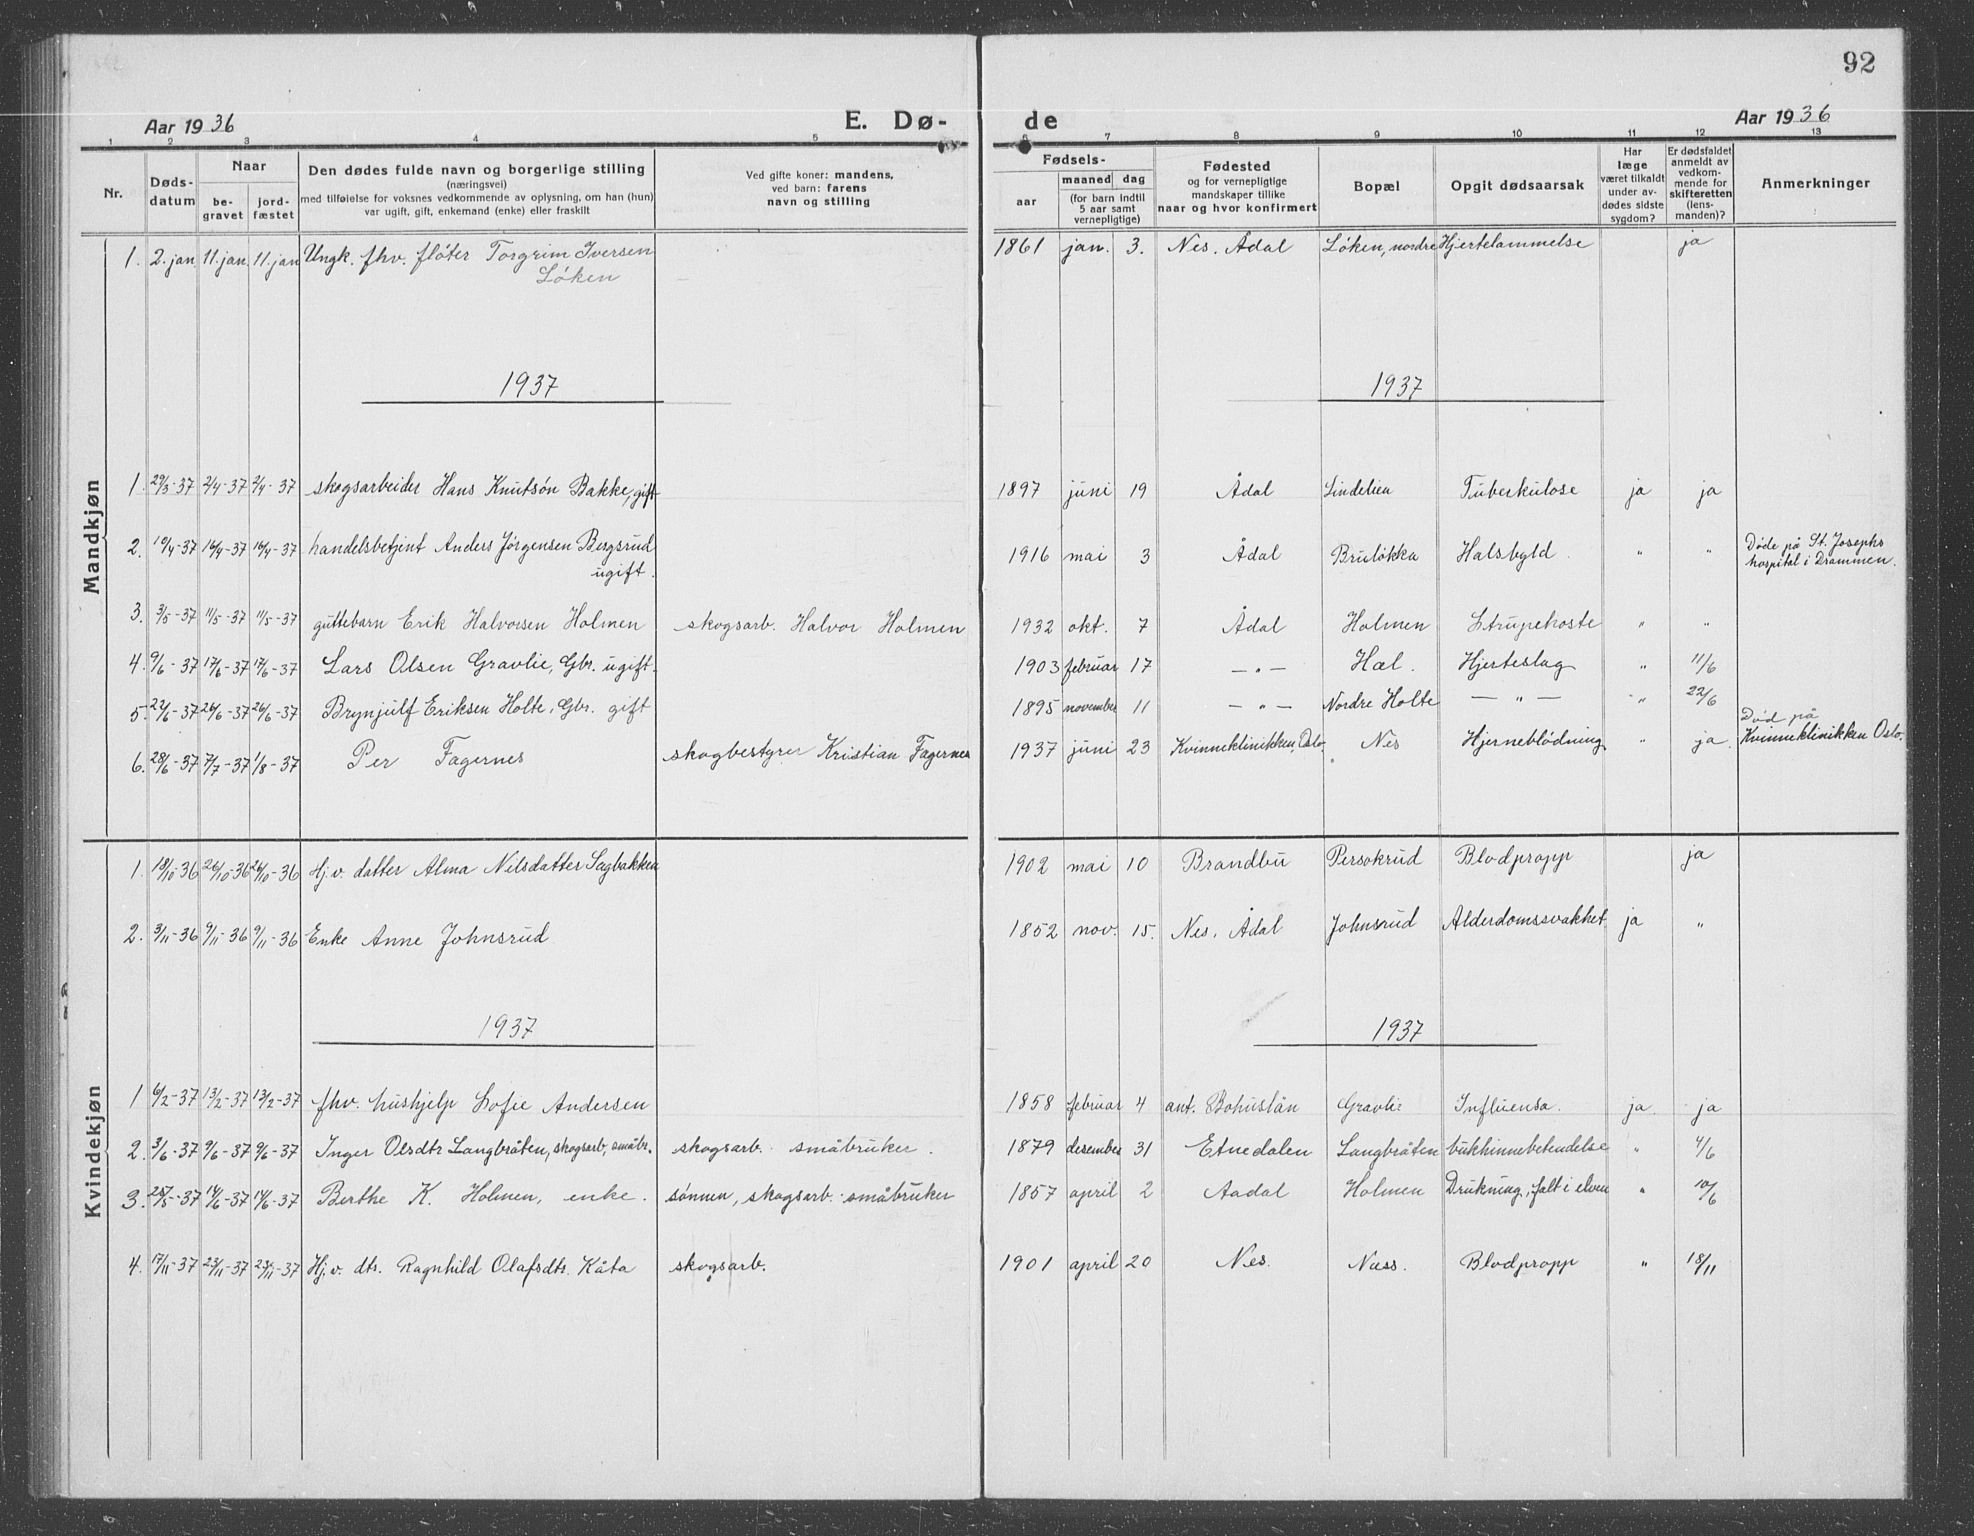 92
Aar 1936 E. Dø- de Aar 1936
1 2 3 4 5 6 7 8 9 10 11 12 13
Nr.
Døds-
datum
Naar
be-
gravet
jord-
fæstet
Den dødes fulde navn og borgerlige stilling
(næringsvei)
med tilføielse for voksnes vedkommende av oplysning, om han (hun)
var ugift, gift, enkemand (enke) eller fraskilt
Ved gifte koner: mandens,
ved barn: farens
navn og stilling
Fødsels-
aar
maaned dag
(for barn indtil
5 aar samt
vernepligtige)
Fødested
og for vernepligtige
mandskaper tillike
naar og hvor konfirmert
Bopæl
Opgit dødsaarsak
Har
læge
været tilkaldt
under av-
dødes sidste
sygdom?
Er dødsfaldet
anmeldt av
vedkom-
mende for
skifteretten
(lens-
manden)?
Anmerkninger
Mandkjøn
1. 2. jan 11. jan. 11. jan Ungk. fhv. fløter Torgrim Iversen Løken 1861 jan. 3. Nes. Ådal Løken, nordre Hjertelammelse ja
1937 1937
1. 29/3-37 2/4-37 2/4-37 skogsarbeider Hans Knutsøn Bakke, gift 1897 juni 19 Ådal Lindelien Tuberkulose ja ja
2. 10/4-37 16/4-37 16/4-37 handelsbetjent Anders Jørgensen Bergsrud ugift. 1916 mai 3 Ådal Bruløkka Halsbyld " " Døde på St. Josephs hospital i Drammen.
3. 3/5-37 11/5-37 11/5-37 guttebarn Erik Halvorsen Holmen skogsarb. Halvor Holmen 1932 okt. 7 Ådal Holmen Strupehoste " "
4. 9/6-37 17/6-37 17/6-37 Lars Olsen Gravlie, Gbr. ugift. 1903 februar 17 — " — Hæl. Hjerteslag " 11/6
5. 22/6-37 26/6-37 26/6-37 Brynjulf Eriksen Holte, Gbr. gift 1895 november 11 — " — Nordre Holte — " — " 22/6
6. 28/6-37 7/7-37 1/8-37 Per Fagernes skogbestyrer Kristian Fagernes 1937 juni 23 Kvinneklinikken, Oslo. Nes Hjerneblødning " ja. Død på Kvinneklinikken Oslo.
Kvindekjøn
1. 18/10-36 26/10-36 26/10-36 Hj.v. datter Alma Nilsdatter Sagbakken 1902 mai 10 Brandbu Persokrud Blodpropp ja
2. 3/11-36 9/11-36 9/11-36 Enke Anne Johnsrud 1852 nov. 15. Nes. Ådal Johnsrud Alderdomssvakhet. ja "
1937 1937
1 6/2-37 13/2-37 13/2-37 fhv. hushjelp Sofie Andersen 1858 februar 4 ant. Bohuslän Gravlie Influensa. ja. ja
2. 3/6-37 9/6-37 9/6-37 Inger Olsdtr Langbråten, skogsarb, småbr. skogsarb. småbruker. 1879 desember 31 Etnedalen Langbråten bukhinnebetendelse " 4/6
3. 25/5-37 14/6-37 14/6-37 Berthe K. Holmen, enke. sønnen, skogsarb. småbruker 1857 april 2 Aadal Holmen Drukning, falt i elven " 10/6
4. 17/11-37 23/11-37 23/11-37 Hj.v. dtr. Ragnhild Olafsdtr. Kåta skogsarb. 1901 april 20 Nes. Næss. Blodpropp " 18/11